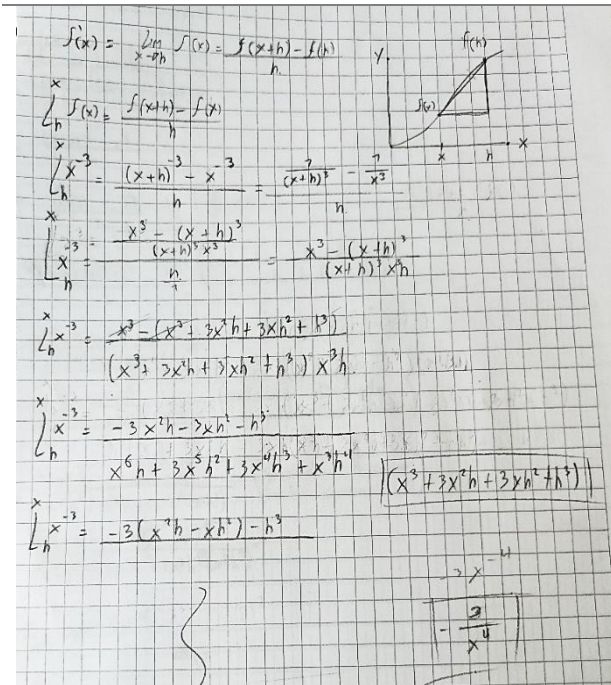 f'(x) = lim x→h f(x) = f(x+h) - f(h) / h
Y f(h)
f(x)
x h X
x
L f(x) = f(x+h) - f(x) / h
h
x
L x^-3 = (x+h)^-3 - x^-3 / h = 1/(x+h)^3 - 1/x^3 / h
h
x
L x^-3 = x^3 - (x+h)^3 / (x+h)^3 x^3 / h/1 = x^3 - (x+h)^3 / (x+h)^3 x^3 h
h
x
L x^-3 = x^3 - (x^3 + 3x^2h + 3xh^2 + h^3) / (x^3 + 3x^2h + 3xh^2 + h^3) x^3h
h
x
L x^-3 = -3x^2h - 3xh^2 - h^3 / x^6h + 3x^5h^2 + 3x^4h^3 + x^3h^4
h
(x^3 + 3x^2h + 3xh^2 + h^3)
x
L x^-3 = -3(x^2h - xh^2) - h^3
h
-3x^-4
- 3/x^4